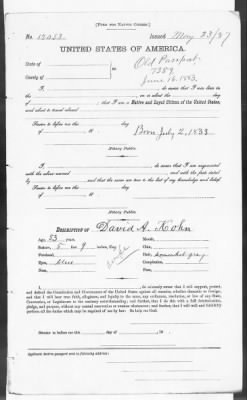 [FORM FOR NATIVE CITIZEN.]
No. Issued May 23/87
UNITED STATES OF AMERICA.
State of Old Passport
County of ss. 7359
June 16. 1883.
I, , do swear that I was born in
, on or about the day
of , that I am a Native and Loyal Citizen of the United States,
and about to travel abroad
Sworn to before me this day
of , 18 Born July 2, 1833
Notary Public.
I, , do swear that I am acquainted
with the above named and with the facts stated
by and that the same are true to the best of my knowledge and belief.
Sworn to before me this day
of 18
Notary Public.
DESCRIPTION OF David A. Kohn
Age, 53 years. Mouth,
Stature, 5 feet 9 inches, Eng. Chin,
Forehead, Hair, gray
Eyes, blue Complexion,
Nose, Face,
I, , do solemnly swear that I will support, protect,
and defend the Constitution and Government of the United States against all enemies, whether domestic or foreign;
and that I will bear true faith, allegiance, and loyalty to the same, any ordinance, resolution, or law of any State,
Convention, or Legislature to the contrary notwithstanding; and further, that I do this with a full determination,
pledge, and purpose, without any mental reservation or evasion whatsoever; and further, that I will well and faithfully
perform all the duties which may be required of me by law. So help me God.
Sworn to before me this day of 18
Applicant desires passport sent to following address: